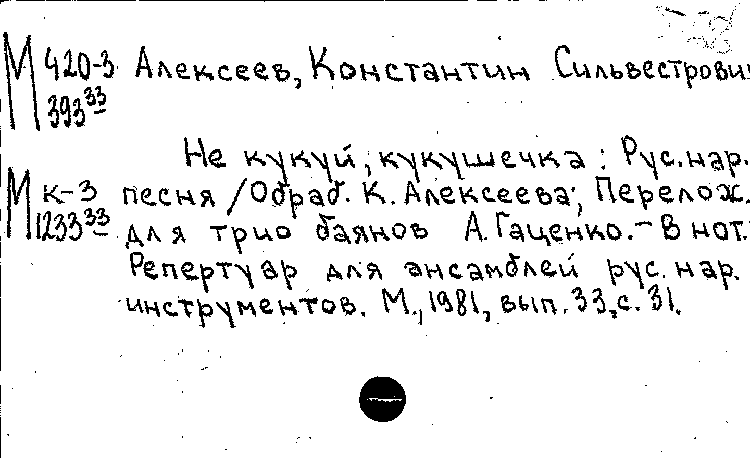 М 420-3 Алексеев, Константин Сильвестрови
393 33
Не кукуй, кукушечка : Рус. нар.
М к-3 песня / Обраб. К. Алексеева; Перелож.
1233 33 для трио баянов А. Гаценко. - В нот.
Репертуар для ансамблей рус. нар.
инструментов. М., 1981, вып. 33, с. 31.